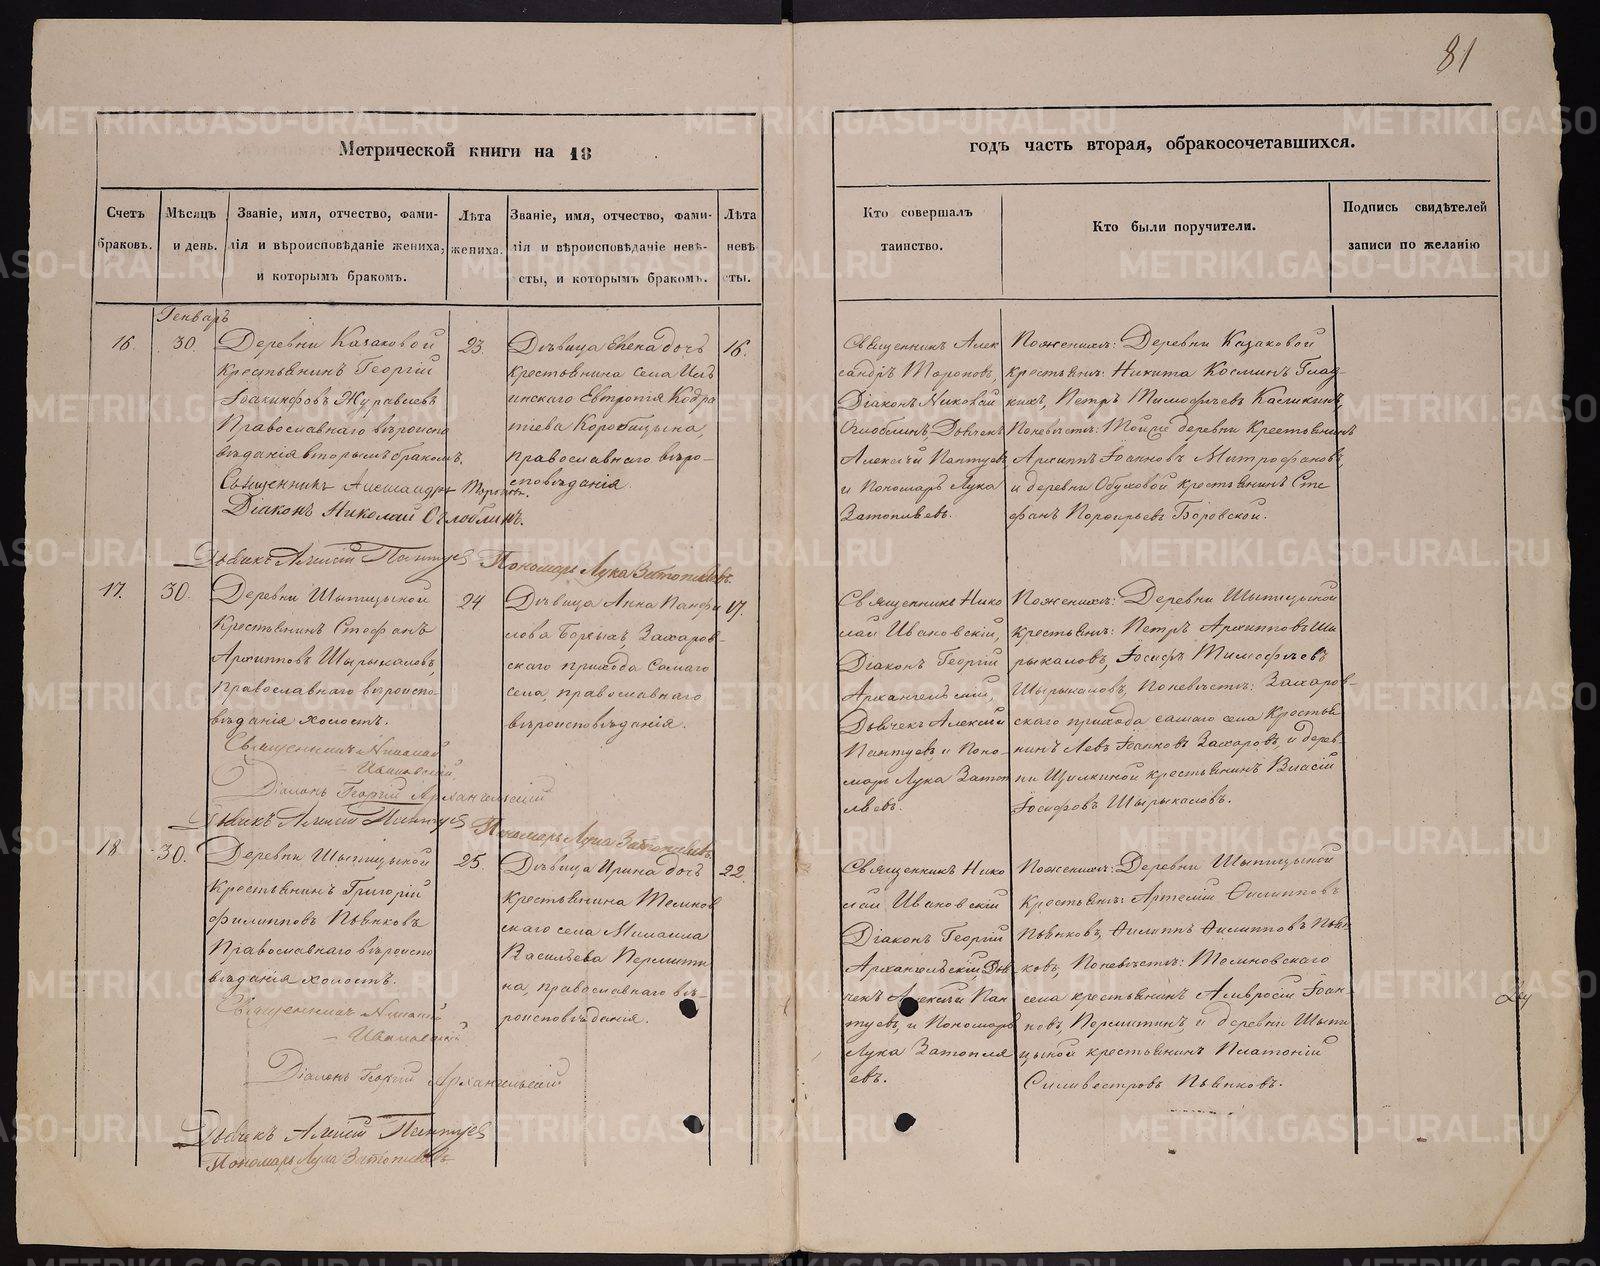 81
Метрической книги на 18
годъ часть вторая, обракосочетавшихся.
Счетъ браковъ.
Мѣсяцъ и день.
Званіе, имя, отчество, фами-
лія и вѣроисповѣданіе жениха,
и которымъ бракомъ.
Лѣта жениха.
Званіе, имя, отчество, фами-
лія и вѣроисповѣданіе невѣ-
сты, и которымъ бракомъ.
Лѣта невѣ сты.
Кто совершалъ
таинство.
Кто были поручители.
Подпись свидѣтелей
записи по желанію
Генварь
16.
30.
Деревни Казаковой
крестьянинъ Георгій
Іоакинфовъ Журавлевъ
Православнаго вѣроиспо
вѣданія вторымъ бракомъ.
Священникъ Александръ Тороповъ.
Діаконъ Николай Оглоблинъ.
Дьячекъ Алексій Пантуев
Пономарь Лука Затопляевъ.
23.
Дѣвица Елена дочь
крестьянина села Иль
инскаго Евтропія Кодра
тіева Коробицына,
православнаго вѣро-
исповѣданія.
16.
Священникъ Алек
сандръ Тороповъ,
Діаконъ Николай
Оглоблинъ, Дьячекъ
Алексѣй Пантуевъ
и Пономарь Лука
Затопляевъ.
По женихѣ: Деревни Казаковой
крестьян: Никита Косминъ Глад-
кихъ, Петръ Тимофѣевъ Касикинъ,
По невѣстѣ: Тойже деревни Крестьянинъ
Архиппъ Іоанновъ Митрофановъ,
и деревни Обуховой крестьянинъ Сте
фанъ Порфирьевъ Боровской.
17.
30.
Деревни Шыпицыной
Крестьянинъ Стефанъ
Архипповъ Шырыкаловъ,
православнаго вѣроиспо-
вѣданія холостъ.
Священникъ Николай
Ивановскій.
Діаконъ Георгій Архангельскій
Дьячекъ Алексій Пантуев
Пономарь Лука Затопляевъ.
24
Дѣвица Анна Панфи
лова Захаров-
скаго прихода самаго
села, православнаго
вѣроисповѣданія.
17.
Священникъ Нико
лай Ивановскій,
Діаконъ Георгій
Архангельскій,
Дьячекъ Алексѣй
Пантуевъ и Поно-
марь Лука Затоп
ляевъ.
По женихѣ: Деревни Шыпицыной
крестьян: Петръ Архипповъ Шы
рыкаловъ, Іосифъ Тимофѣевъ
Шырыкаловъ, По невѣстѣ: Захаров-
скаго прихода самаго села Крестья
нинъ Левъ Іоанновъ Захаровъ, и дерев-
ни Щипкиной крестьянинъ Власій
Іосифовъ Шырыкаловъ.
18
30.
Деревни Шыпицыной
Крестьянинъ Григорій
Филипповъ Пьянковъ
Православнаго вѣроиспо
вѣданія холостъ.
Священникъ Николай
Ивановскій.
Діаконъ Георгій Архангельскій
Дьячекъ Алексій Пантуев
Пономарь Лука Затопляевъ
25.
Дѣвица Ирина дочь
крестьянина Темнов
скаго села Михаила
Васильева Пермити
на, православнаго вѣ-
роисповѣданія.
22.
Священникъ Нико
лай Ивановскій
Діаконъ Георгій
Архангельскій, Дья
чекъ Алексѣй Пан
туевъ, и Пономарь
Лука Затопля
евъ.
По женихѣ: Деревни Шыпицыной
крестьян: Артемій Филипповъ
Пьянковъ, Филиппъ Филипповъ Пьян
ковъ, По невѣстѣ: Темновскаго
села крестьянинъ Амвросій Іоан-
новъ, Пермитинъ, и деревни Шыпи
цыной крестьянинъ Платоній
Силивестровъ Пьянковъ.